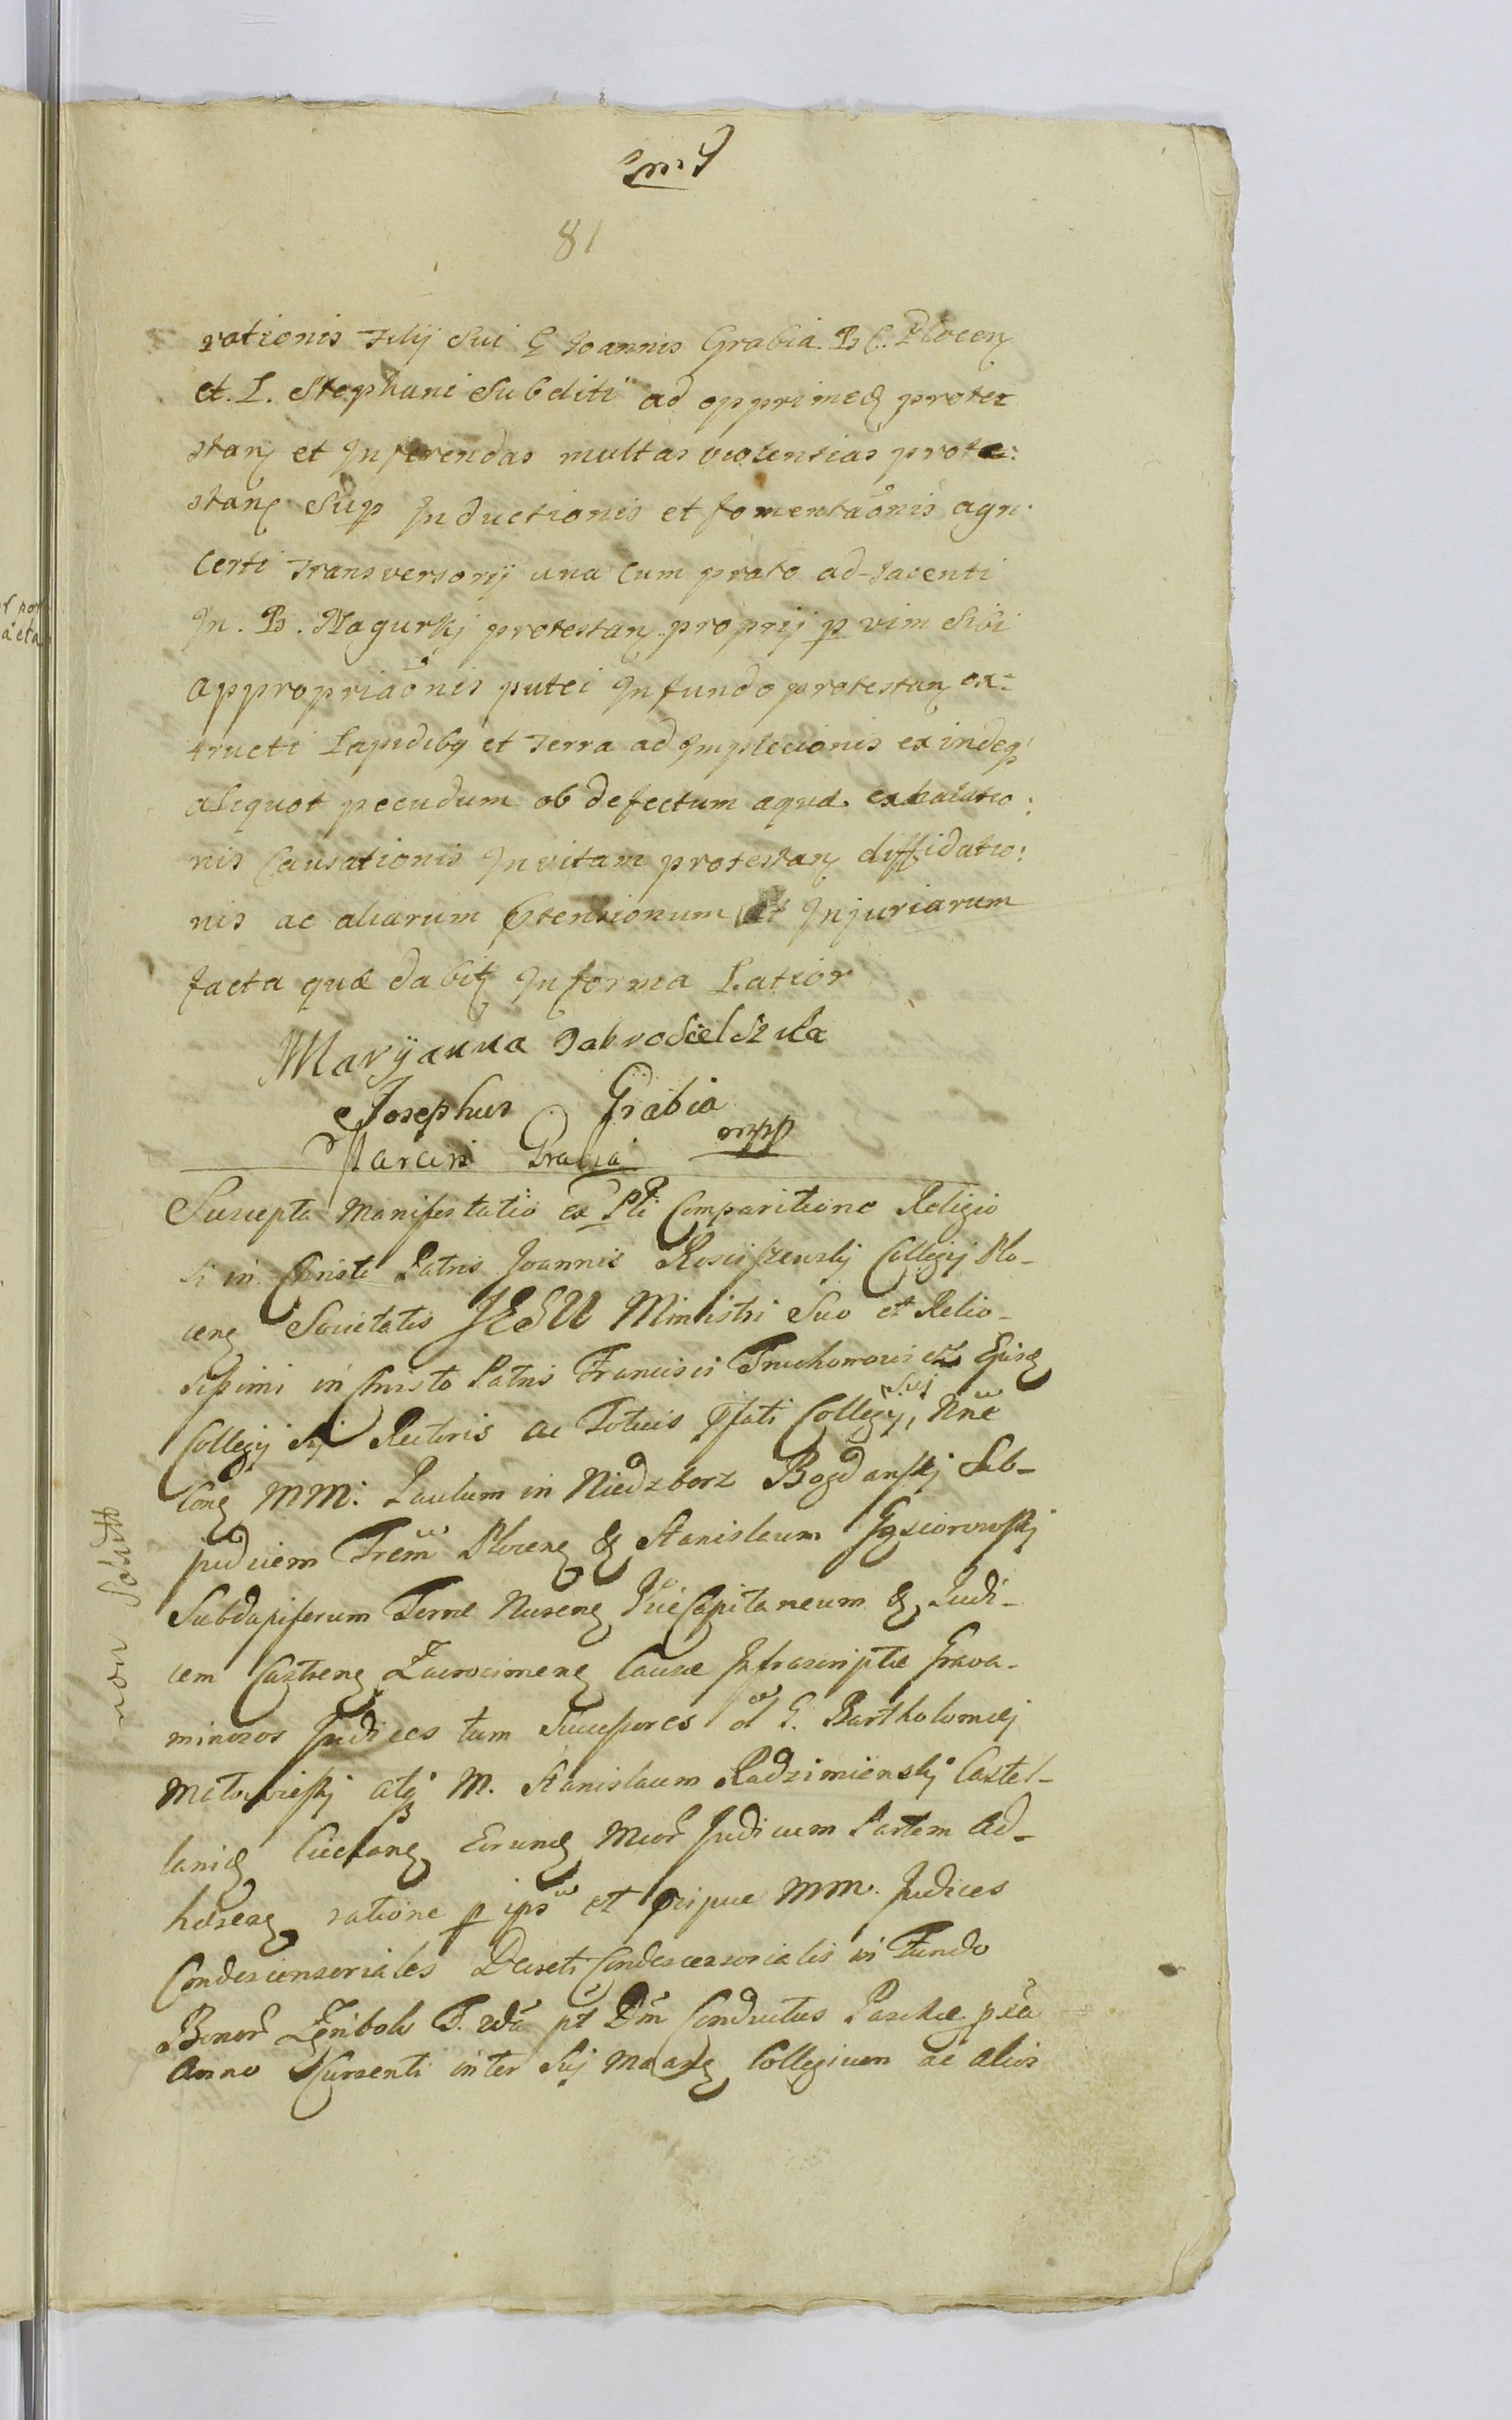 81
rationis Filij Sui G Joannis Grabia. B. C. Plocen
et. L. Stephani Subditi ad opprimed protes
stan et Inferendas multas violentias prote:
stan Sup Inductionis et fomentaonis agri
certi Transversorij una cum prato ad-Jacenti
In. B. Nagurkj protestan proprij p vim Sibi
appropriaonis putei In fundo protestan ex=
tructi Lapidibq et Terra ad Implecionis exindeq
aliquot pecudum ob defectum aquæ exhalatio:
nis Causationis In vitam protestan diffidatio:
nis ac aliarum Ptensionum et Injuriarum
facta quæ dabit In forma Latior
Maryanna
Josephus Grabia
Marcin Grabia mpp
Suscepta Manifestatio ex Pti Comparitione Religio
si in Christo Patris Joannis Rosciszewskj Collegij Plo-
cen Societatis JESU Ministri Suo et Relio-
sissimi in Christo Patris Francisci
Collegij Sj Rectoris ac Totius Pfati Collegij Suj, Nne
Con MM: Paulum in Niedzborz Bogdanskj Sub-
judicem Trem Plocen & Stanislaum Gąsiorowskj
Subdapiferum Terræ Nuren ViceCapitaneum & Judi-
cem Castren Zacrocimen Causæ Infrascriptæ Grava-
minosos Judices tum Successores ol G. Bartholomæj
atq M. Stanislaum Radzimienskj Castel-
lanid Ciechan Eorund Mcor Judicum Partem Ad-
hæren ratione p ips et Pcipue MM. Judices
Condescensoriales Decreti Condescensorialis in Fundo
Bonor T. pt Dm Conductus Paschæ pxa
Anno Currenti inter Suj Collegium ac alios
non